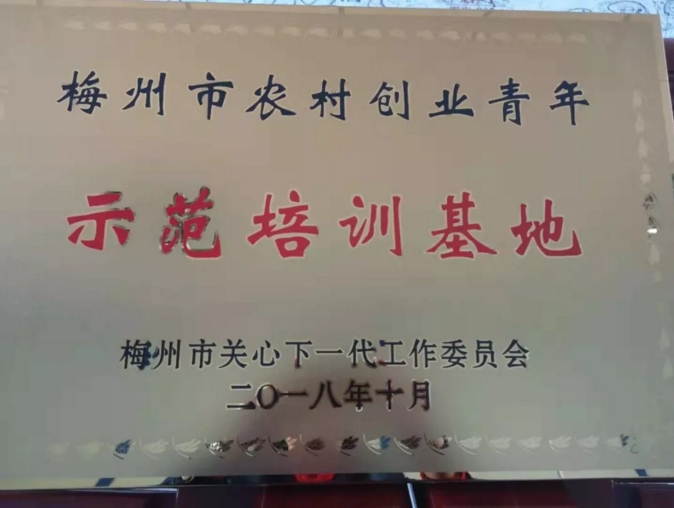 梅州市农村创业青年
示范培训基地
梅州市关心下一代工作委员会
二〇一八年十月